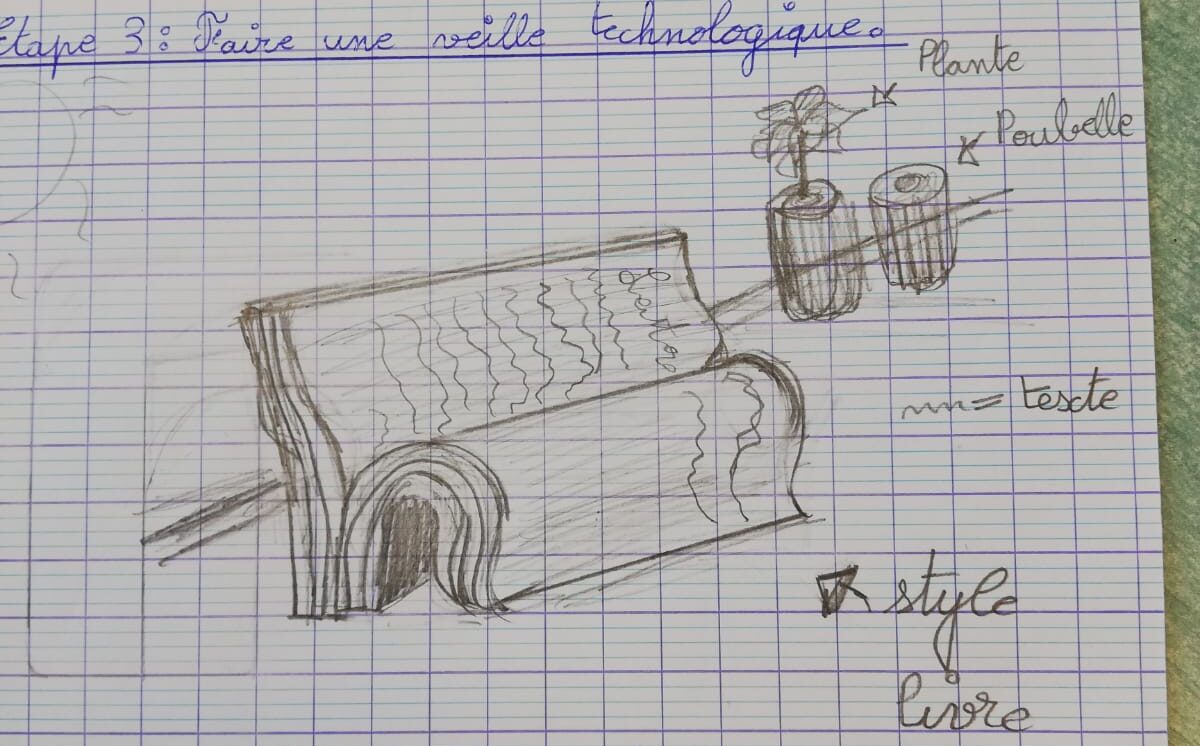 Étape 3: Faire une veille technologique.
Plante
Poubelle
= texte
style
livre